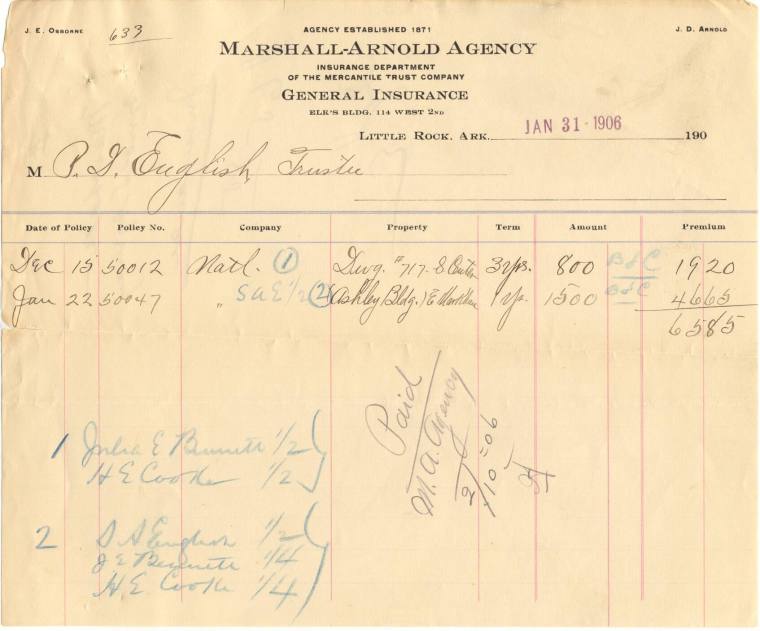 J. E. Osborne
633
AGENCY ESTABLISHED 1871
J. D. Arnold
MARSHALL-ARNOLD AGENCY
INSURANCE DEPARTMENT
OF THE MERCANTILE TRUST COMPANY
GENERAL INSURANCE
ELK'S BLDG. 114 WEST 2ND
LITTLE ROCK, ARK. JAN 31 1906 190
M P. D. English, Trustee
Date of Policy Policy No. Company Property Term Amount Premium
Dec 15 50012 Natl. 1 Dwg. #717 S 3 yrs. 800 B & C 19 20
Jan 22 50047 " S A E 1/2 2 (Ashley Bldg.) E 1 yr. 1500 B & C 46 65
65 85
Paid
M. A. Agency
2/10-06
1 Julia E Bennett 1/2
H E Cooke 1/2
2 S A English 1/2
J E Bennett 1/4
H E Cooke 1/4